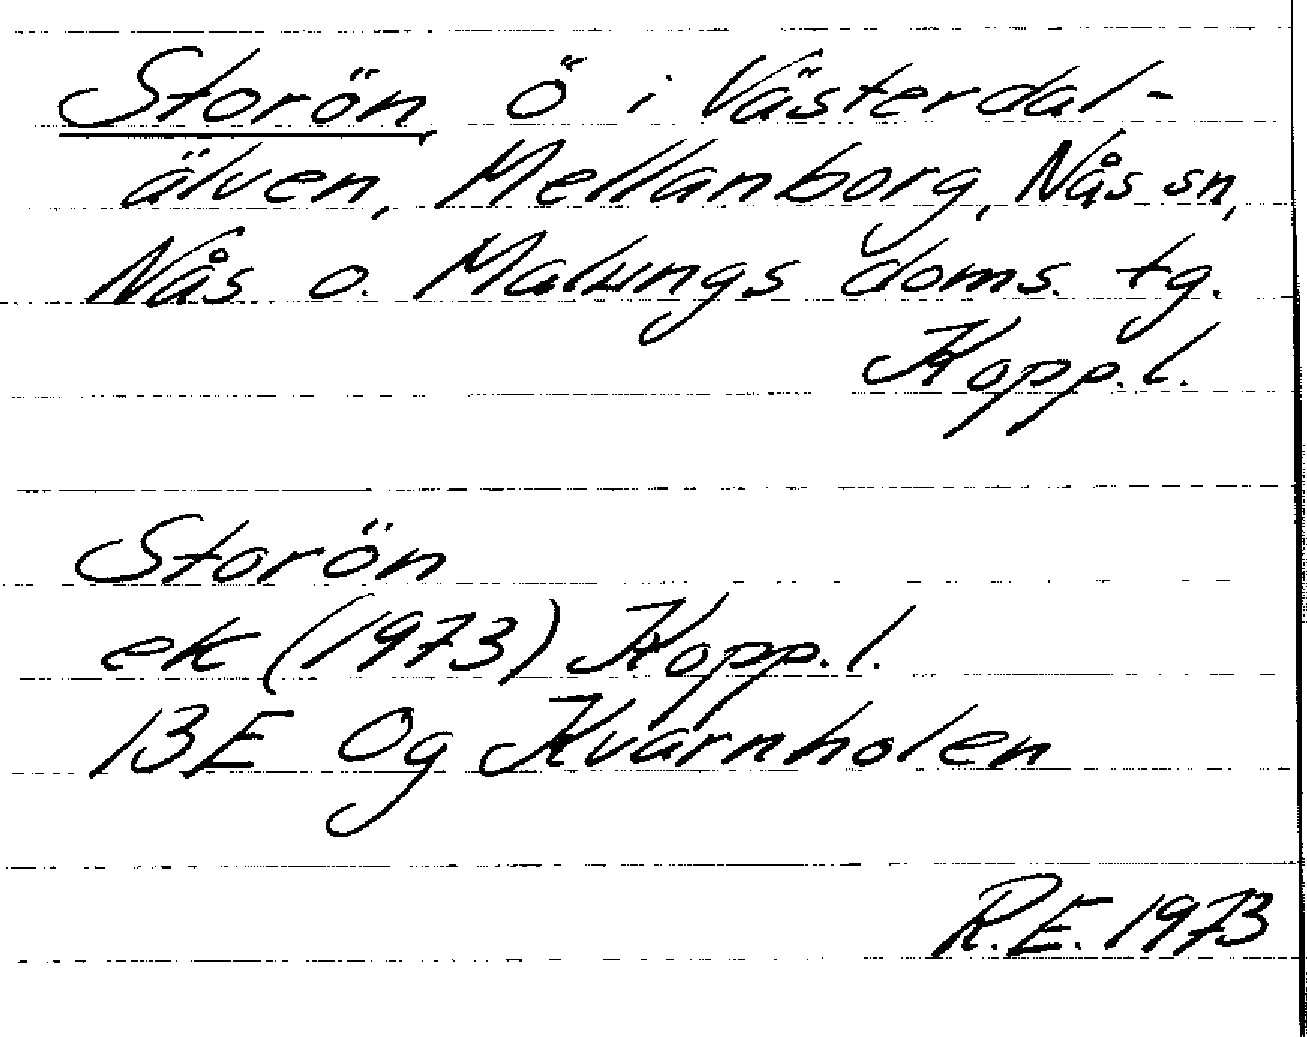 Storön, ö i Västerdal-
älven, Mellanborg, Nås sn,
Nås o. Malungs doms. tg.
Kopp. l.
Storön
ek (1973) Kopp. l.
13E 0g Kvarnholen
R.E. 1973